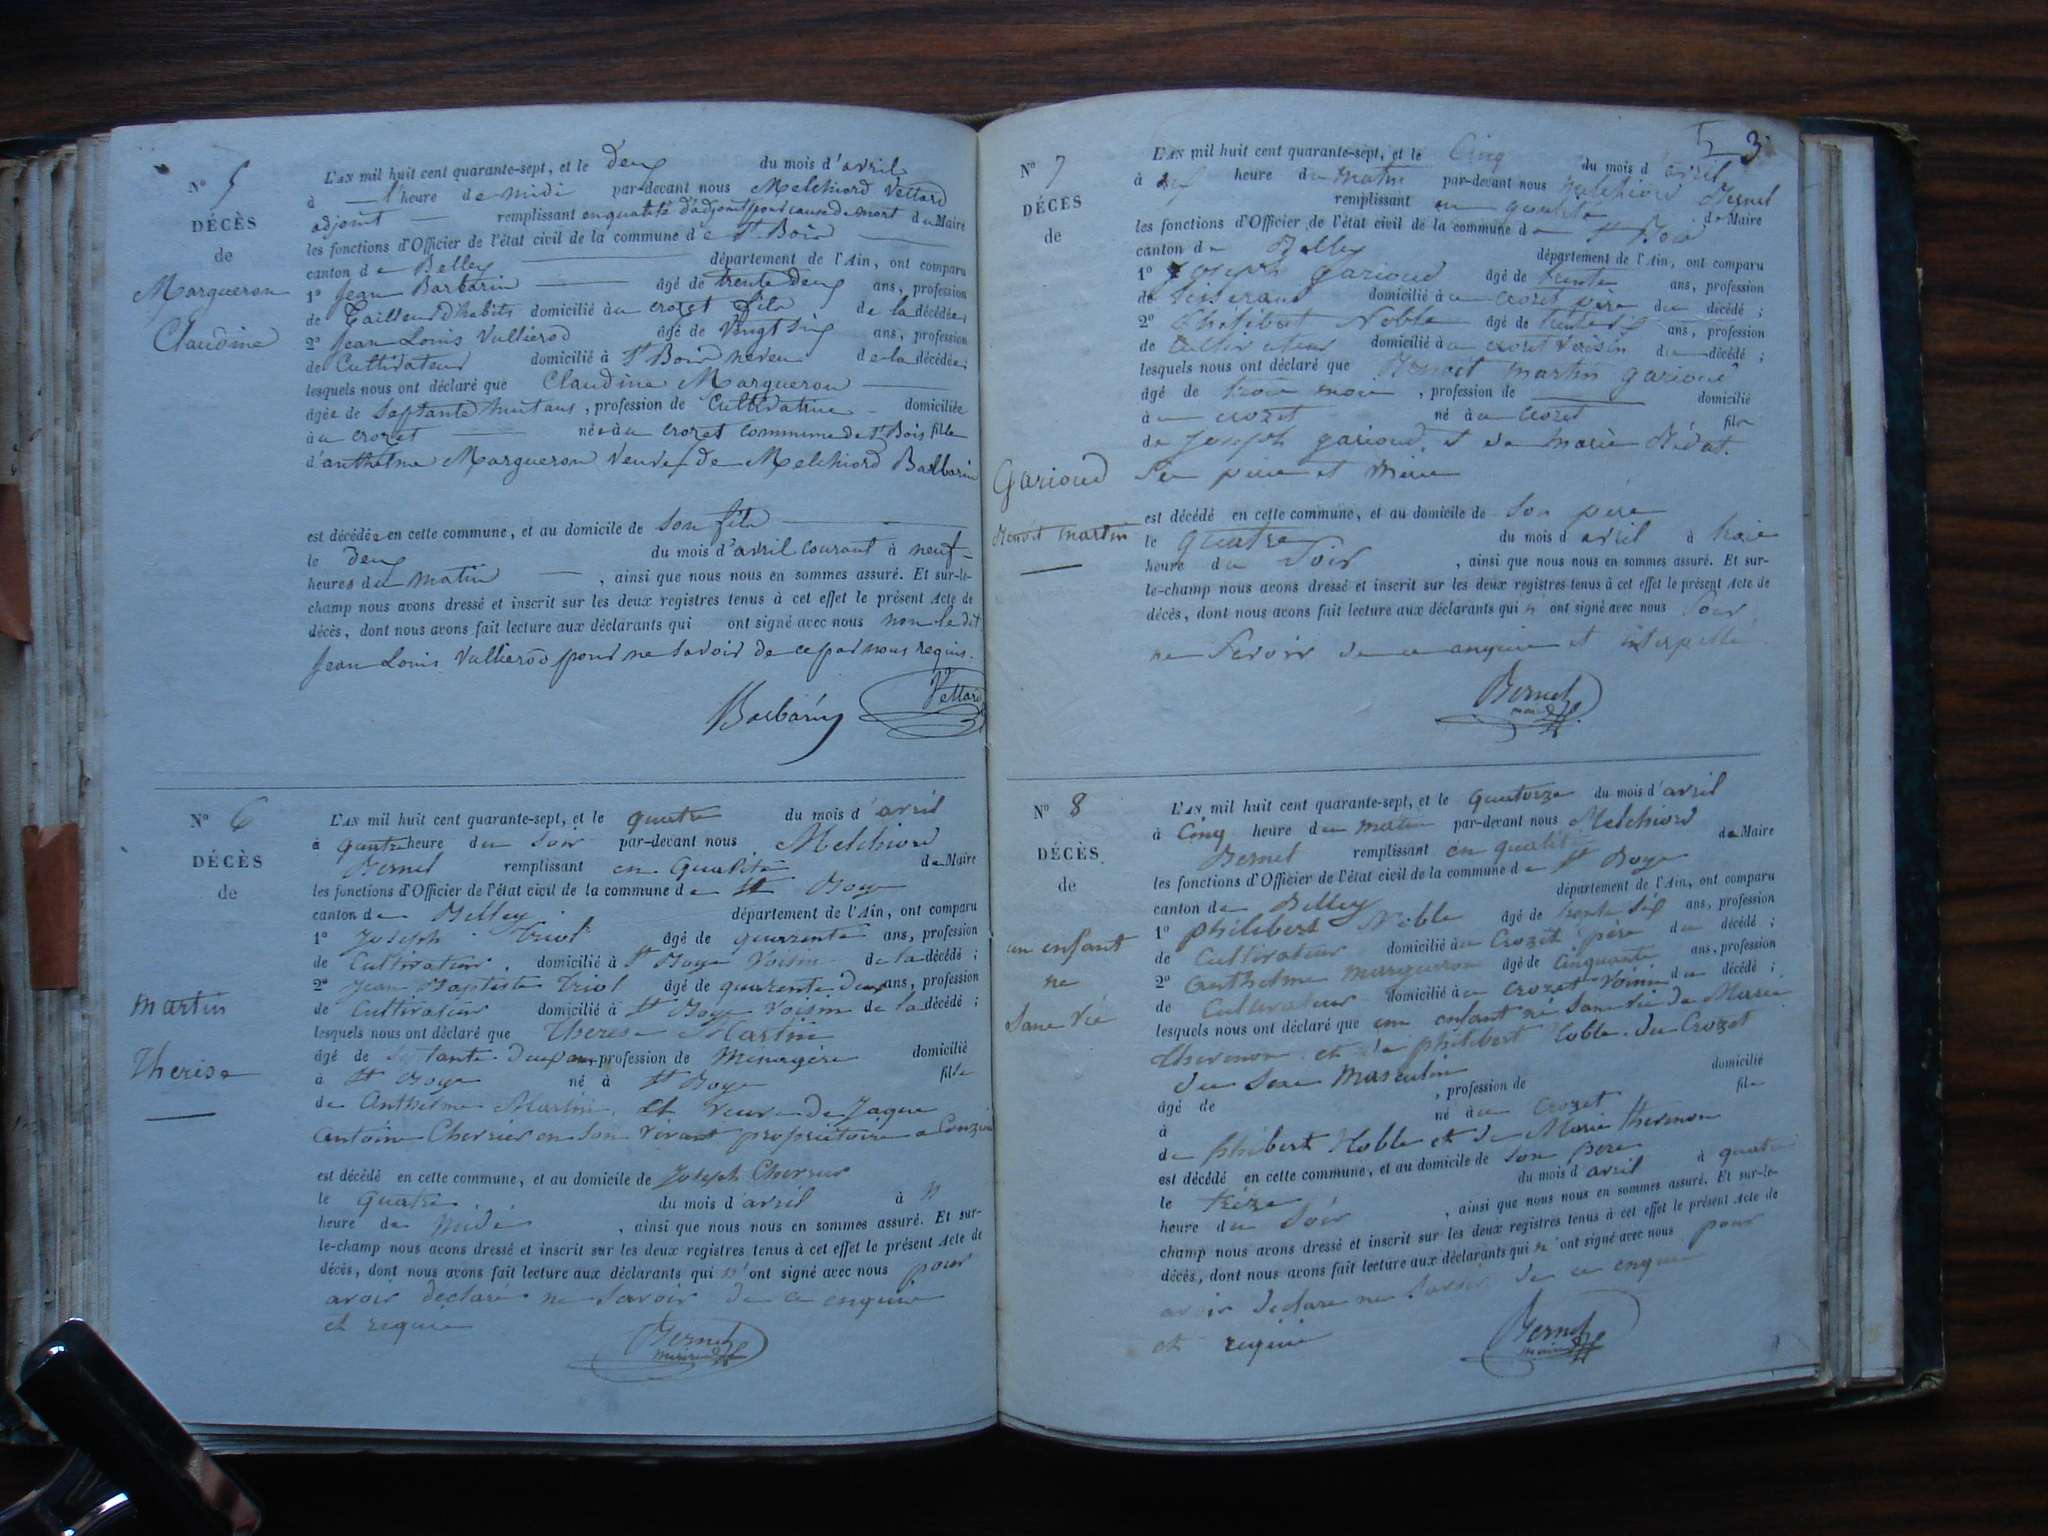 N° 5
DÉCÈS
de
Margueron
Claudine
L'AN mil huit cent quarante-sept, et le deux du mois d'avril
à l'heure de midi par-devant nous Melchiord Vettard
adjoint remplissant en qualité d'adjoint pour cause de mort du Maire
les fonctions d'Officier de l'état civil de la commune de St Bois
canton de Belley département de l'Ain, ont comparu
1° Jean Barbarin âgé de trente deux ans, profession
de Tailleur d'habits domicilié à au crozet fils de la décédée;
2° Jean Louis Vullierod âgé de Vingt six ans, profession
de Cultivateur domicilié à St Bois neveu de la décédée;
lesquels nous ont déclaré que Claudine Margueron
âgée de Septante huit ans, profession de Cultivatrice domiciliée
à au crozet née à au crozet commune de St Bois fille
d'anthelme Margueron Veuve de Melchiord Barbarin
est décédée en cette commune, et au domicile de son fils
le deux du mois d'avril courant à neuf
heures du matin, ainsi que nous nous en sommes assuré. Et sur-le-
champ nous avons dressé et inscrit sur les deux registres tenus à cet effet le présent Acte de
décès, dont nous avons fait lecture aux déclarants qui ont signé avec nous non le dit
Jean Louis Vullierod pour ne savoir de ce par nous requis.
Barbarin Vettard
N° 6
DÉCÈS
de
Martin
Therese
L'AN mil huit cent quarante-sept, et le quatre du mois d'avril
à quatre heure du soir par-devant nous Melchiord
Bernel remplissant en qualité de Maire
les fonctions d'Officier de l'état civil de la commune de St Boys
canton de Belley département de l'Ain, ont comparu
1° Joseph Triol âgé de quarente ans, profession
de Cultivateur domicilié à St Boys Voisin de la décédé;
2° Jean Baptiste Triol âgé de quarente deux ans, profession
de Cultivateur domicilié à St Boys Voisin de la décédé;
lesquels nous ont déclaré que Therese Martin
âgé de septante deux ans profession de Menagère domicilié
à St Boys né à St Boys fille
de Anthelme Martin et veuve de Jaque
Antoine Cherrier en son vivant propriétaire a
est décédé en cette commune, et au domicile de Joseph Cherrier
le quatre du mois d'avril à
heure de midi, ainsi que nous nous en sommes assuré. Et sur-
le-champ nous avons dressé et inscrit sur les deux registres tenus à cet effet le présent Acte de
décès, dont nous avons fait lecture aux déclarants qui n'ont signé avec nous pour
avoir déclaré ne savoir de ce enquis
et requis
Bernel
maire
5 3
N° 7
DÉCÈS
de
Garioud
Benoit Martin
L'AN mil huit cent quarante-sept, et le Cinq du mois d'avril
à heure du matin par-devant nous Melchiord Bernel
remplissant en qualité de Maire
les fonctions d'Officier de l'état civil de la commune de St Bois
canton de Belley département de l'Ain, ont comparu
1° Joseph Garioud âgé de trente ans, profession
de Tisserand domicilié à au crozet père du décédé;
2° Philibert Noble âgé de ans, profession
de Cultivateur domicilié à au crozet Voisin du décédé;
lesquels nous ont déclaré que Benoit Martin Garioud
âgé de trois mois, profession de domicilié
à au crozet né à au crozet fils
de Joseph garioud et de Marie
Ses père et Mère
est décédé en cette commune, et au domicile de Son père
le quatre du mois d'avril à
heure du Soir, ainsi que nous nous en sommes assuré. Et sur-
le-champ nous avons dressé et inscrit sur les deux registres tenus à cet effet le présent Acte de
décès, dont nous avons fait lecture aux déclarants qui n'ont signé avec nous Pour
ne Savoir de ce enquis et interpellé
Bernel
maire
N° 8
DÉCÈS
de
un enfant
né
Sans Vie
L'AN mil huit cent quarante-sept, et le quatorze du mois d'avril
à Cinq heure du matin par-devant nous Melchiord
Bernel remplissant en qualité de Maire
les fonctions d'Officier de l'état civil de la commune de St Boys
canton de Belley département de l'Ain, ont comparu
1° philibert Noble âgé de trente six ans, profession
de Cultivateur domicilié à au Crozet père du décédé;
2° Anthelme Margueron âgé de Cinquante ans, profession
de Cultivateur domicilié à au crozet Voisin du décédé;
lesquels nous ont déclaré que un enfant né sans vie de Marie
Thevenon et de philibert Noble du Crozet
du Sexe Masculin
âgé de, profession de domicilié
à né à au Crozet fils
de phibert Noble et de Marie thevenon
est décédé en cette commune, et au domicile de Son pere
le treize du mois d'avril à quatre
heure du Soir, ainsi que nous nous en sommes assuré. Et sur-le-
champ nous avons dressé et inscrit sur les deux registres tenus à cet effet le présent Acte de
décès, dont nous avons fait lecture aux déclarants qui n'ont signé avec nous pour
avoir déclaré ne savoir de ce enquis
et requis
Bernel
maire